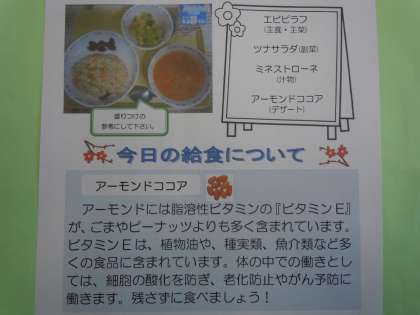 エビピラフ
(主食・主菜)
ツナサラダ(副菜)
ミネストローネ
(汁物)
アーモンドココア
(デザート)
盛りつけの
参考にして下さい。
今日の給食について
アーモンドココア
アーモンドには脂溶性ビタミンの『ビタミンE』
が、ごまやピーナッツよりも多く含まれています。
ビタミンEは、植物油や、種実類、魚介類など多
くの食品に含まれています。体の中での働きとし
ては、細胞の酸化を防ぎ、老化防止やがん予防に
働きます。残さずに食べましょう!